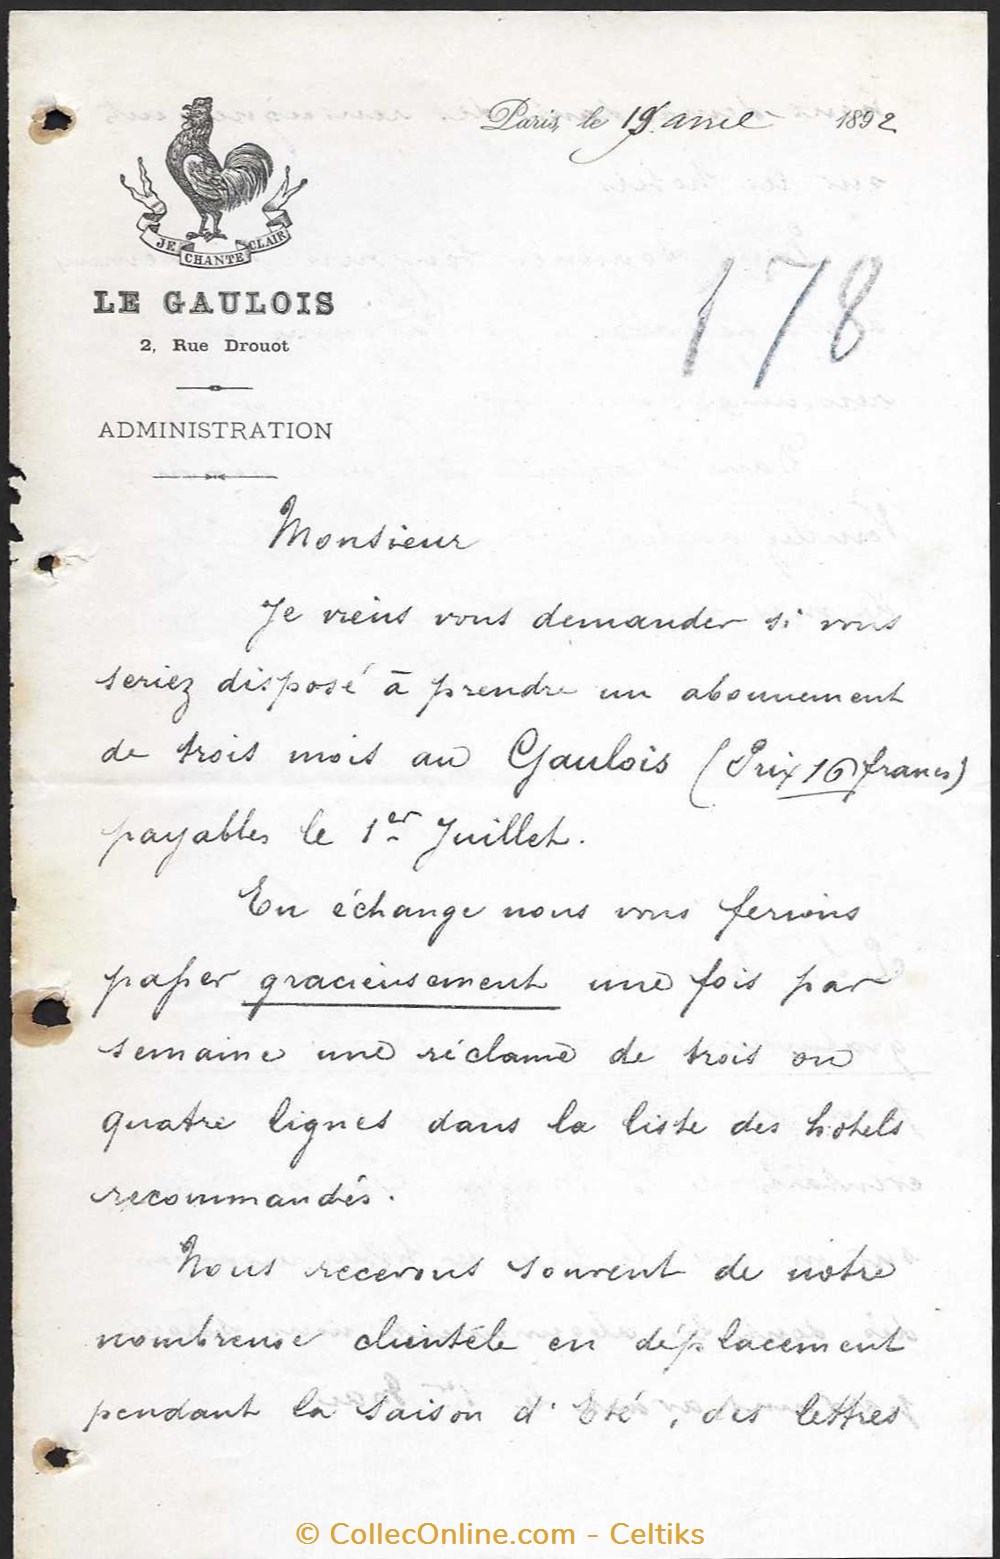 Paris, le 19 avril 1892
JE CHANTE CLAIR
LE GAULOIS
2, Rue Drouot
ADMINISTRATION
178
Monsieur
Je viens vous demander si vous
seriez disposé à prendre un abonnement
de trois mois au Gaulois (Prix 16 francs)
payables le 1er Juillet.
En échange nous vous ferions
passer gracieusement une fois par
semaine une réclame de trois ou
quatre lignes dans la liste des hotels
recommandés.
Nous recevons souvent de notre
nombreuse clientèle en déplacement
pendant la saison d'Eté, des lettres
© CollecOnline.com - Celtiks